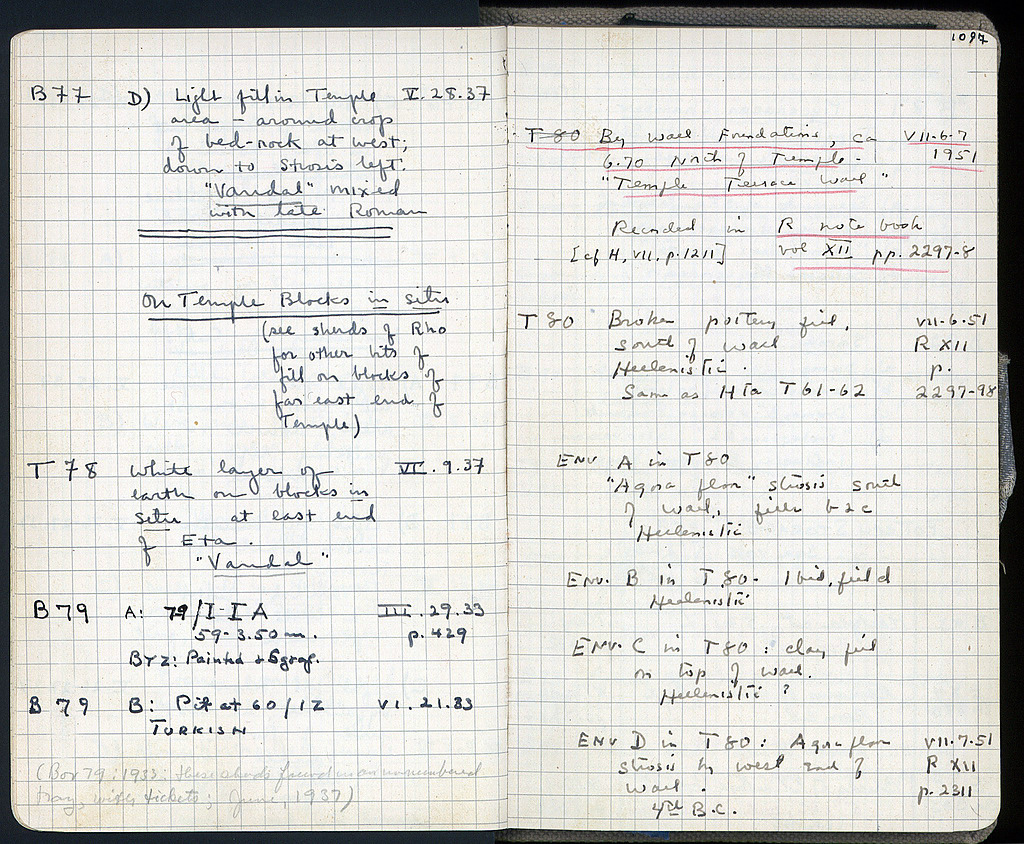 B 77 D) Light fill in Temple V. 28. 37
area – around crop
of bed-rock at west;
down to strosis left.
"Vandal" mixed
with late Roman
On Temple Blocks in situ
(see sherds of Rho
for other bits of
fill on blocks of
far east end of
Temple)
T 78 White layer of VI. 9. 37
earth on blocks in
situ at east end
of Eta.
"Vandal"
B 79 A: 79/I-IA III. 29. 33
59-3.50 m. p. 429
BYZ: Painted & Sgraf.
B 79 B: Pit at 60/IZ VI. 21. 33
TURKISH
(Box 79: 1933: these sherds found in an unnumbered
tray, with tickets; June, 1937)
1097
T 80 By wall Foundations, ca VII-6-7
6.70 North of Temple - 1951
"Temple Terrace Wall".
Recorded in R note book
[cf H, VII, p. 1211] vol XII pp. 2297-8
T 80 Broken pottery fill, VII-6-51
south of wall R XII
Hellenistic. p.
Same as HTa T 61-62 2297-98
ENV A in T 80
"Agora floor" strosis south
of wall, filler b2c
Hellenistic
ENV. B in T 80 - Ibid, fill d
Hellenistic
ENV. C in T 80: clay fill
on top of wall.
Hellenistic?
ENV D in T 80: Agora floor VII-7-51
strosis by west end of R XII
wall. p. 2311
4th B.C.